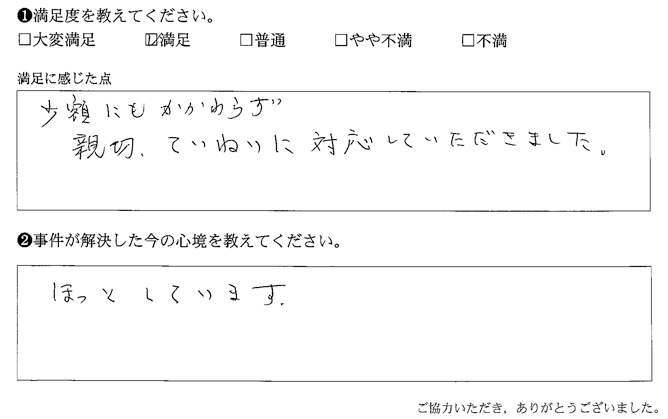 ❶満足度を教えてください。
□大変満足 ☑満足 □普通 □やや不満 □不満
満足に感じた点
少額にもかかわらず
親切、ていねいに対応していただきました。
❷事件が解決した今の心境を教えてください。
ほっとしています.
ご協力いただき，ありがとうございました。